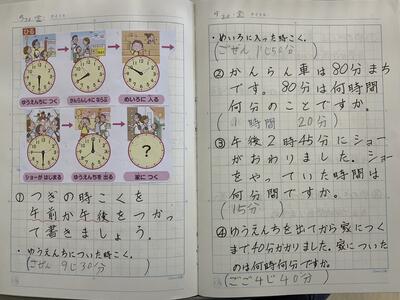 ひる
ゆうえんちに つく
かんらんしゃに ならぶ
めいろに 入る
ショーが はじまる
ゆうえんちを 出る
家に つく
?
① つぎの時こくを
午前か午後をつかっ
て書きましょう。
・ゆうえんちについた時こく。
(ごぜん 9じ30分)
・めいろに入った時こく。
(ごぜん 11じ50分)
② かんらん車は80分まち
です。80分は何時間
何分のことですか。
(1時間 20分)
③ 午後2時45分にショー
がおわりました。ショー
をやっていた時間は
何分間ですか。
(15分)
④ ゆうえんちを出てから家につく
まで40分かかりました。家についた
のは何時何分ですか。
(ごご4じ40分)